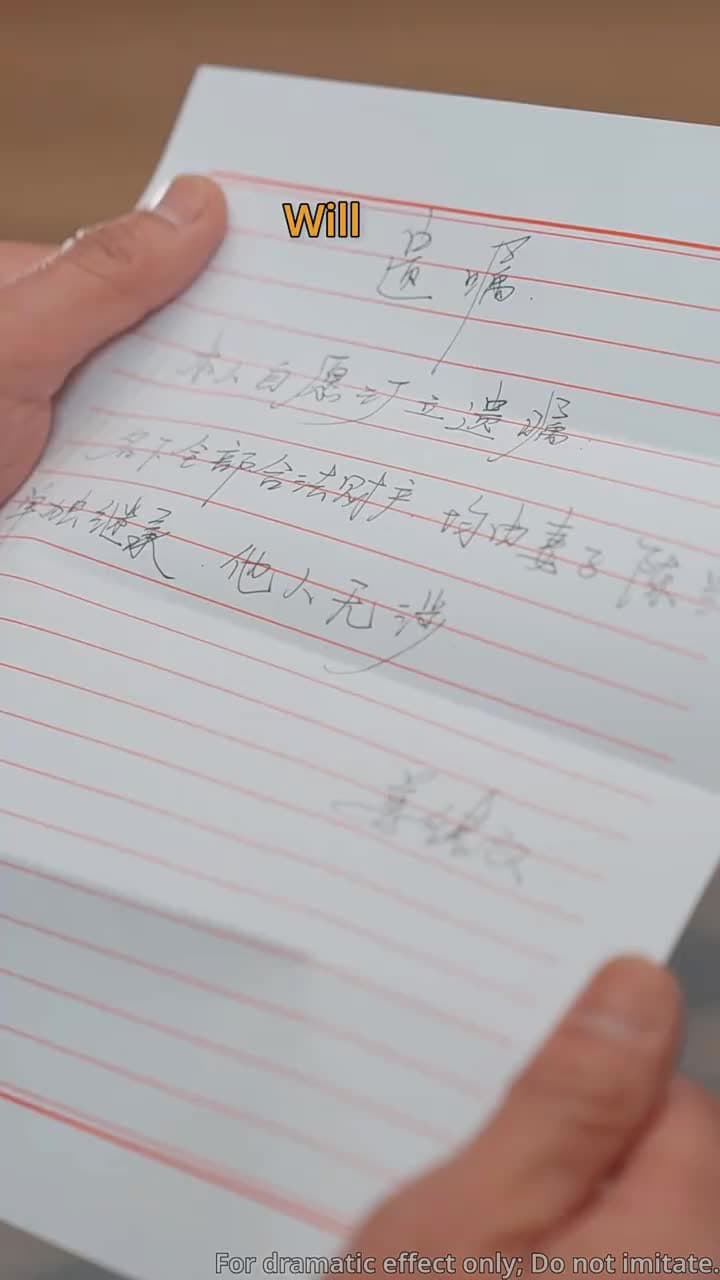 Will
遗嘱.
本人自愿订立遗嘱.
名下全部合法财产 均由妻子陈
单独继承.他人无涉
For dramatic effect only; Do not imitate.